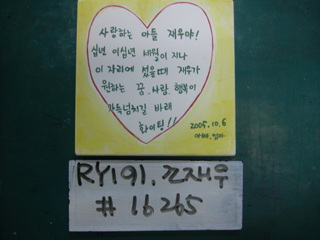 사랑하는 아들 재우야!
십년 이십년 세월이 지나
이 자리에 섰을때 재우가
원하는 꿈. 사랑. 행복이
가득넘치길 바래
화이팅!!
2005.10.6
아빠. 엄마
RY191. 조재우
# 16265